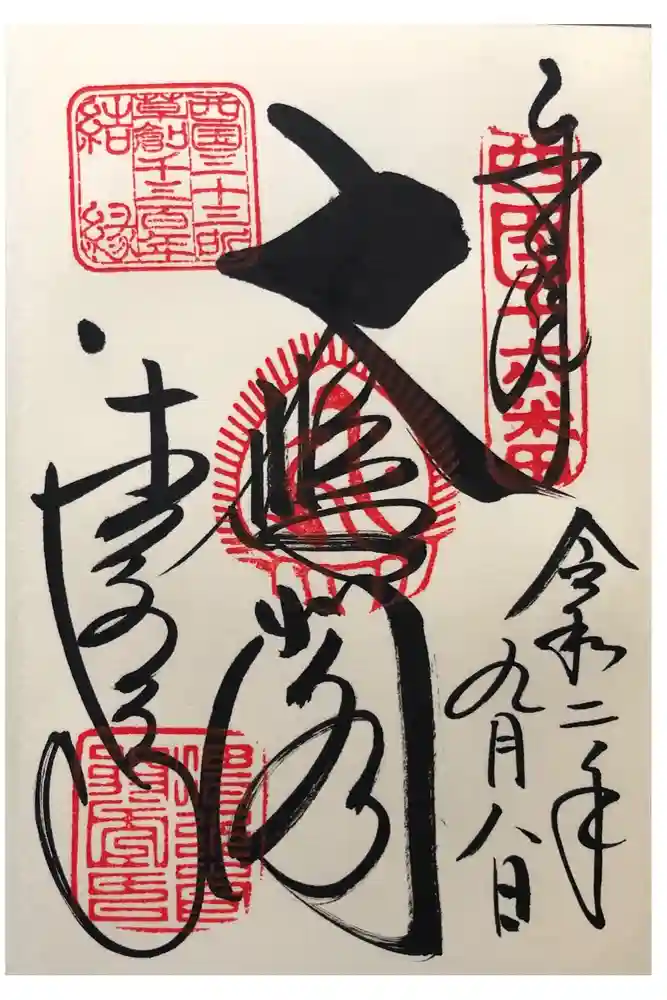 奉拝
西国十六番
令和二年
九月八日
大悲閣
西国三十三所
草創千三百年
結縁
清水寺